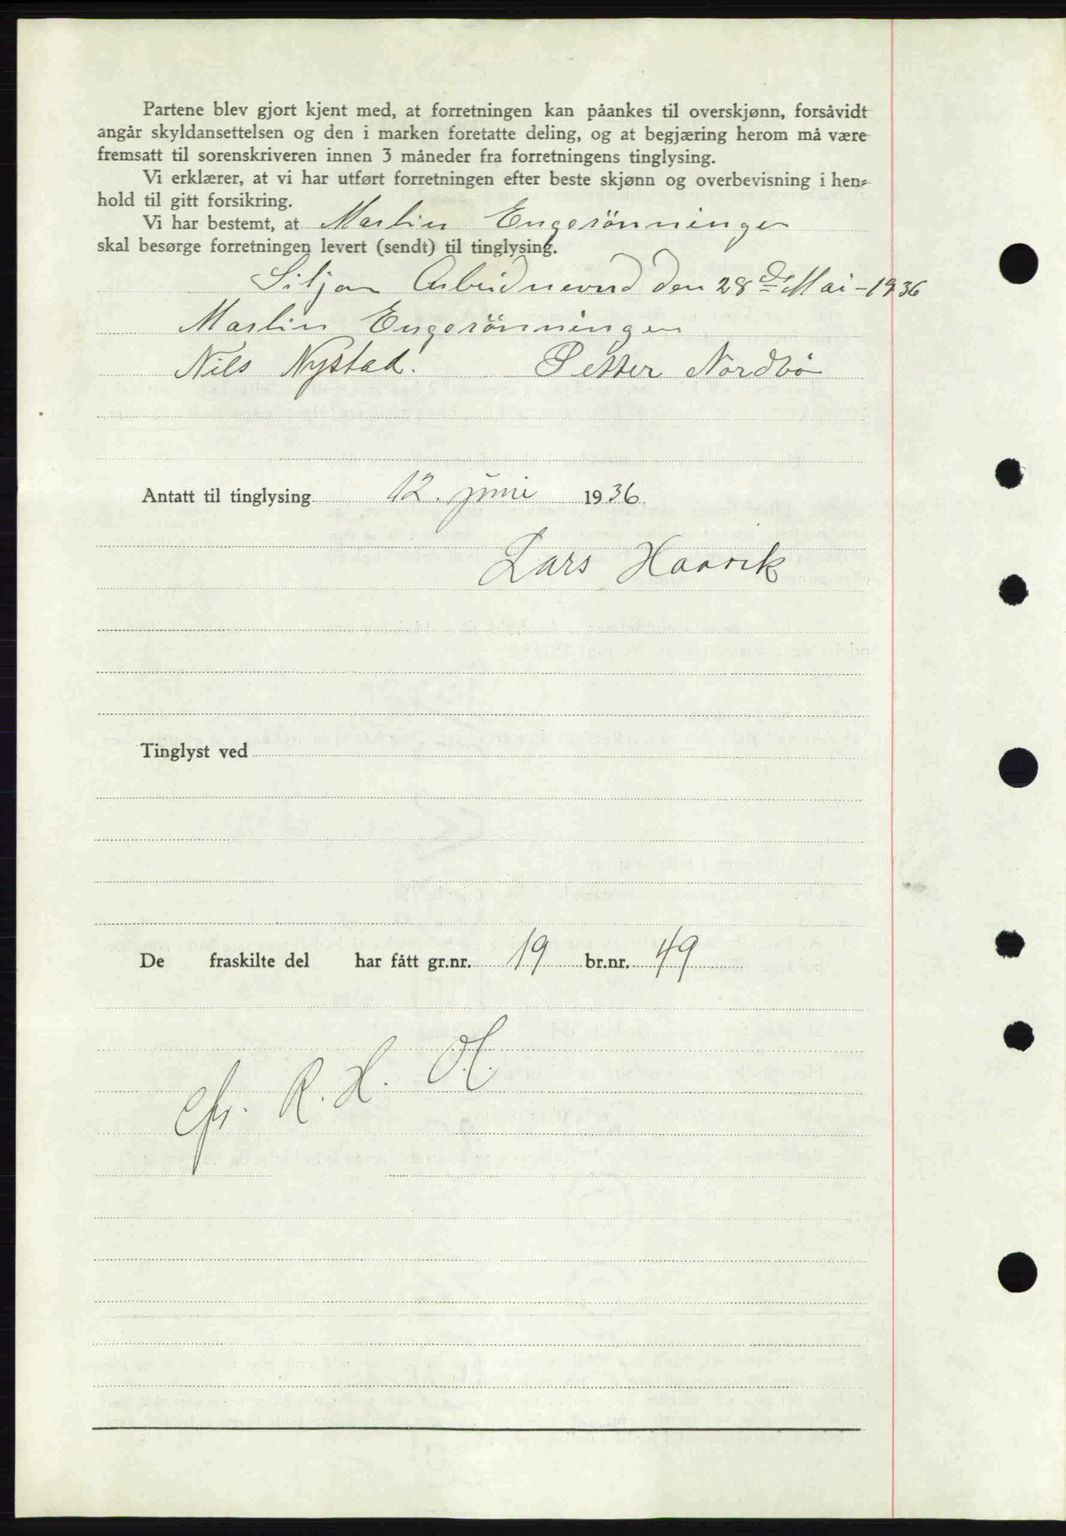 Partene blev gjort kjent med, at forretningen kan påankes til overskjønn, forsåvidt
angår skyldansettelsen og den i marken foretatte deling, og at begjæring herom må være
fremsatt til sorenskriveren innen 3 måneder fra forretningens tinglysing.
Vi erklærer, at vi har utført forretningen efter beste skjønn og overbevisning i hen-
hold til gitt forsikring.
Vi har bestemt, at Martin Engerönningen
skal besørge forretningen levert (sendt) til tinglysing.
Siljan den 28de Mai - 1936
Martin Engerönningen
Nils Nystad. Petter Nordbö
Antatt til tinglysing 12. juni 1936.
Lars Haavik
Tinglyst ved
De fraskilte del har fått gr.nr. 19 br.nr. 49
cfr. R. H.